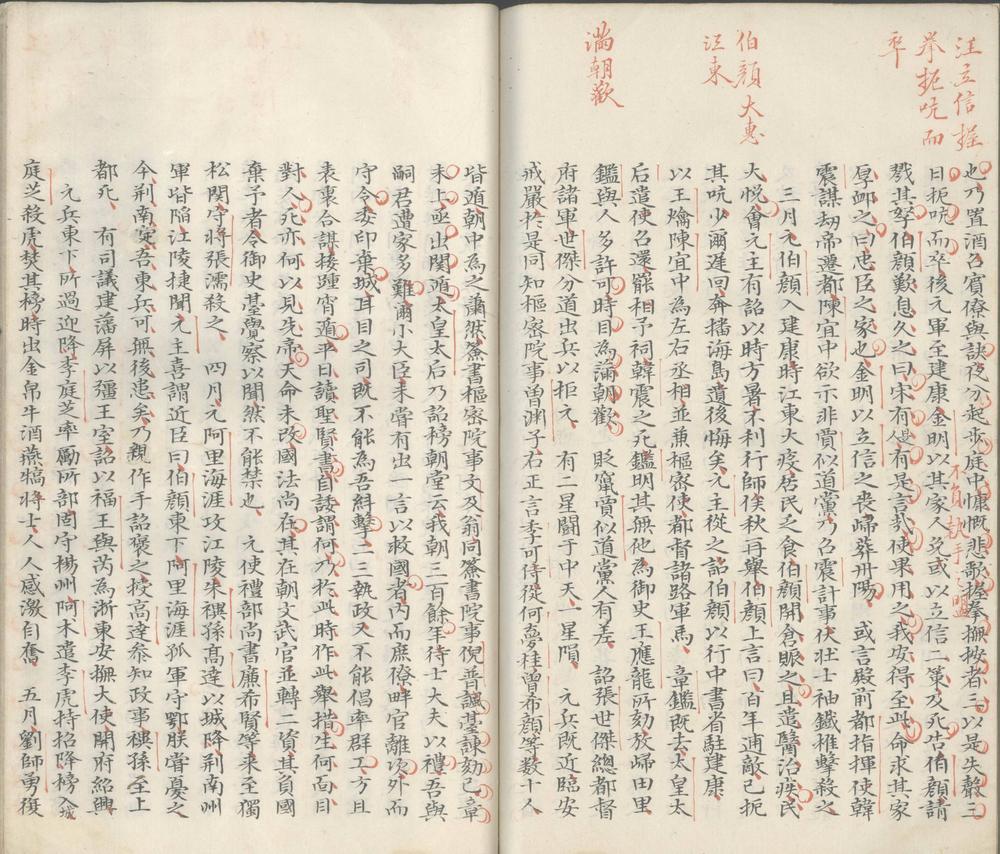 汪立信握
拳扼吭而
卒
伯顏大惠
江東
滿朝歡
也乃置酒召賓僚與訣夜分起步庭中慷慨悲歌握拳撫按者三以是失聲三
日扼吭而卒後元軍至建康金明以其家人免或以立信二策及死告伯顏請
戮其孥伯顏歎息久之曰宋有是人有是言哉使果用之我安得至此命求其家
厚卹之曰忠臣之家也金明以立信之喪歸葬丹陽 或言殿前都指揮使韓
震謀劫帝遷都陳宜中欲示非賈似道黨乃召震計事伏壯士袖鐵椎擊殺之
三月元伯顏入建康時江東大疫居民乏食伯顏開倉賑之且遣醫治疾民
大悅會元主有詔以時方暑不利行師俟秋再舉伯顏上言曰百年逋敵已扼
其吭少爾遲回奔播海島遺後悔矣元主從之詔伯顏以行中書省駐建康
以王爚陳宜中為左右丞相並兼樞密使都督諸路軍馬 章鑑既去太皇太
后遣使召還罷相予祠韓震之死鑑明其無他為御史王應龍所劾放歸田里
鑑與人多許可時目為滿朝歡 貶竄賈似道黨人有差 詔張世傑總都督
府諸軍世傑分道出兵以拒元 有二星鬬于中天一星隕 元兵既近臨安
戒嚴於是同知樞密院事曾淵子右正言季可侍從何夢桂曾希顏等數十人
不負執手之盟
皆遁朝中為之蕭然簽書樞密院事文及翁同簽書院事倪普諷臺諫劾己章
未上亟出關遁太皇太后乃詔榜朝堂云我朝三百餘年待士大夫以禮吾與
嗣君遭家多難爾小大臣未嘗有出一言以救國者內而庶僚畔官離次外而
守令委印棄城耳目之司既不能為吾糾擊二三執政又不能倡率群工方且
表裏合謀接踵宵遁平日讀聖賢書自諉謂何乃於此時作此舉措生何面目
對人死亦何以見先帝天命未改國法尚在其在朝文武官並轉二資其負國
棄予者令御史臺覺察以聞然不能禁也 元使禮部尚書廉希賢等來至獨
松關守將張濡殺之 四月元阿里海涯攻江陵朱禩孫高達以城降荊南州
軍皆陷江陵捷聞元主喜謂近臣曰伯顏東下阿里海涯孤軍守鄂朕嘗憂之
今荊南定吾東兵可無後患矣乃親作手詔褒之授高達參知政事禩孫至上
都死 有司議建藩屏以彊王室詔以福王與芮為浙東安撫大使開府紹興
元兵東下所過迎降李庭芝率勵所部固守揚州阿术遣李虎持招降榜入城
庭芝殺虎焚其榜時出金帛牛酒燕犒將士人人感激自奮 五月劉師勇復